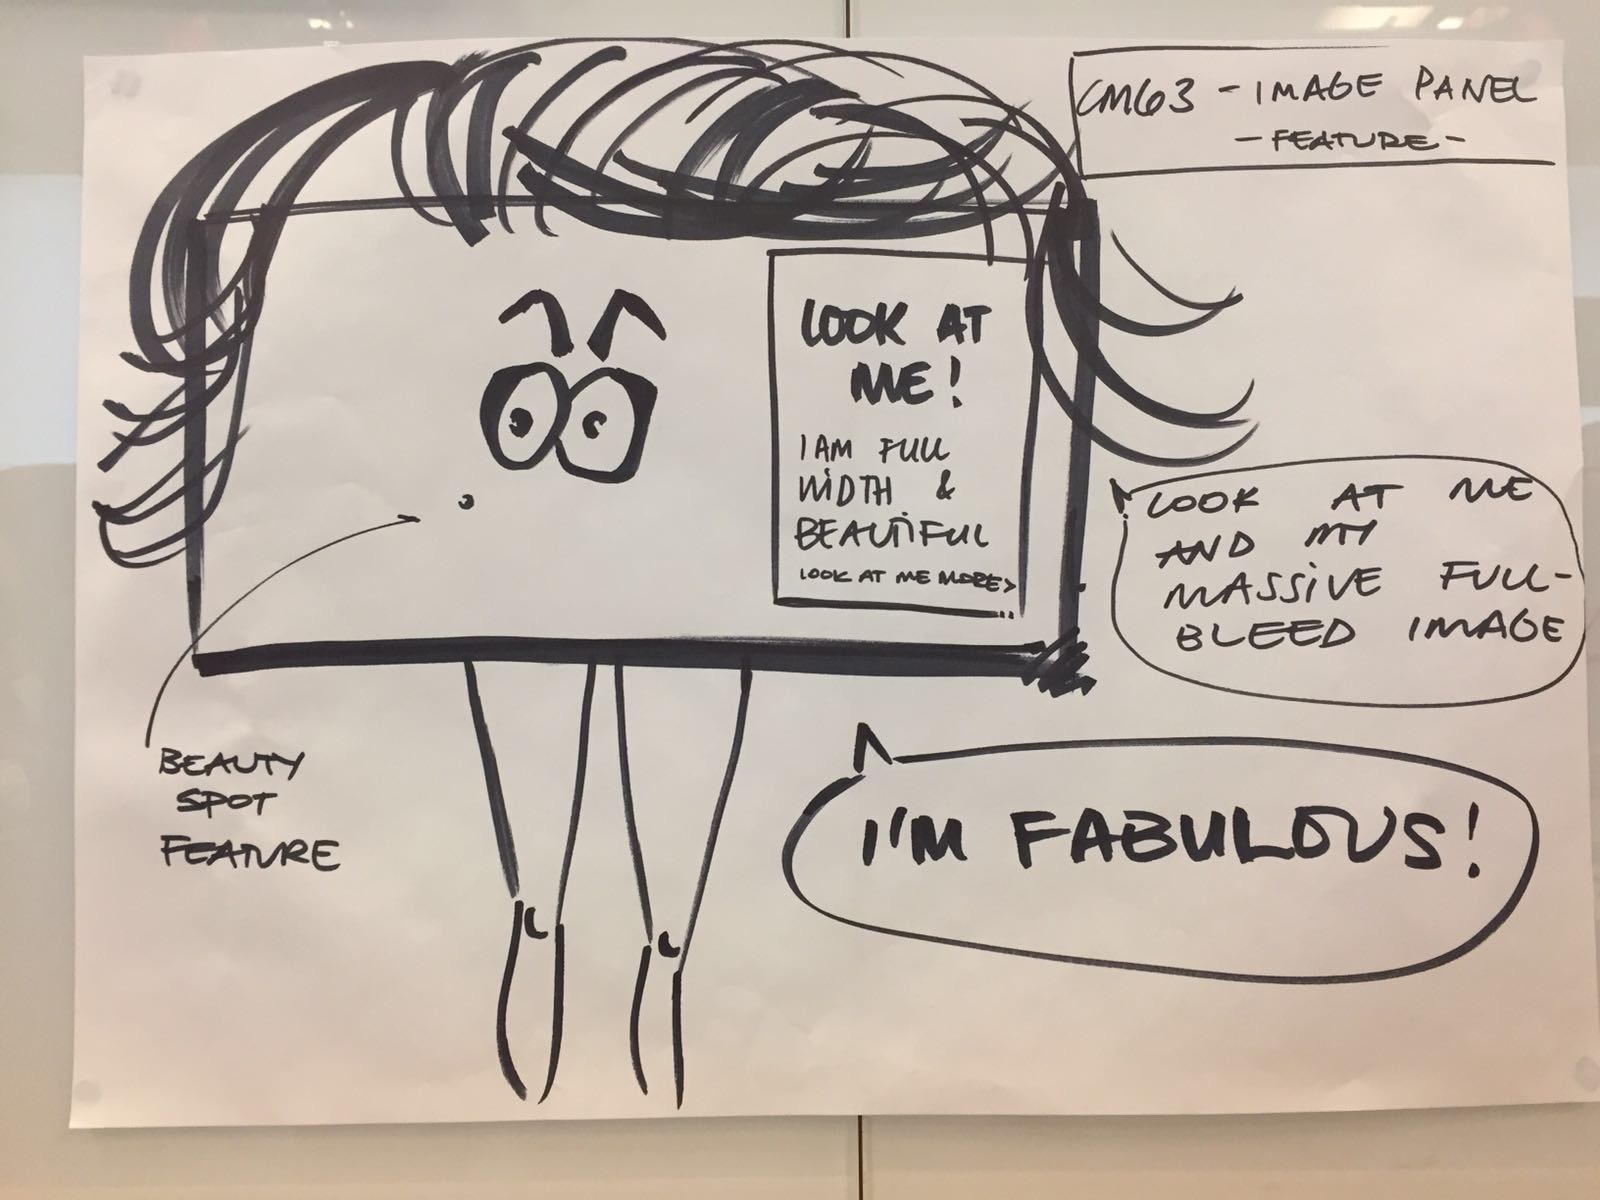 CM63 - IMAGE PANEL
- FEATURE -
LOOK AT
ME!
I AM FULL
WIDTH &
BEAUTIFUL
LOOK AT ME MORE>
LOOK AT ME
AND MY
MASSIVE FULL-
BLEED IMAGE
I'M FABULOUS!
BEAUTY
SPOT
FEATURE